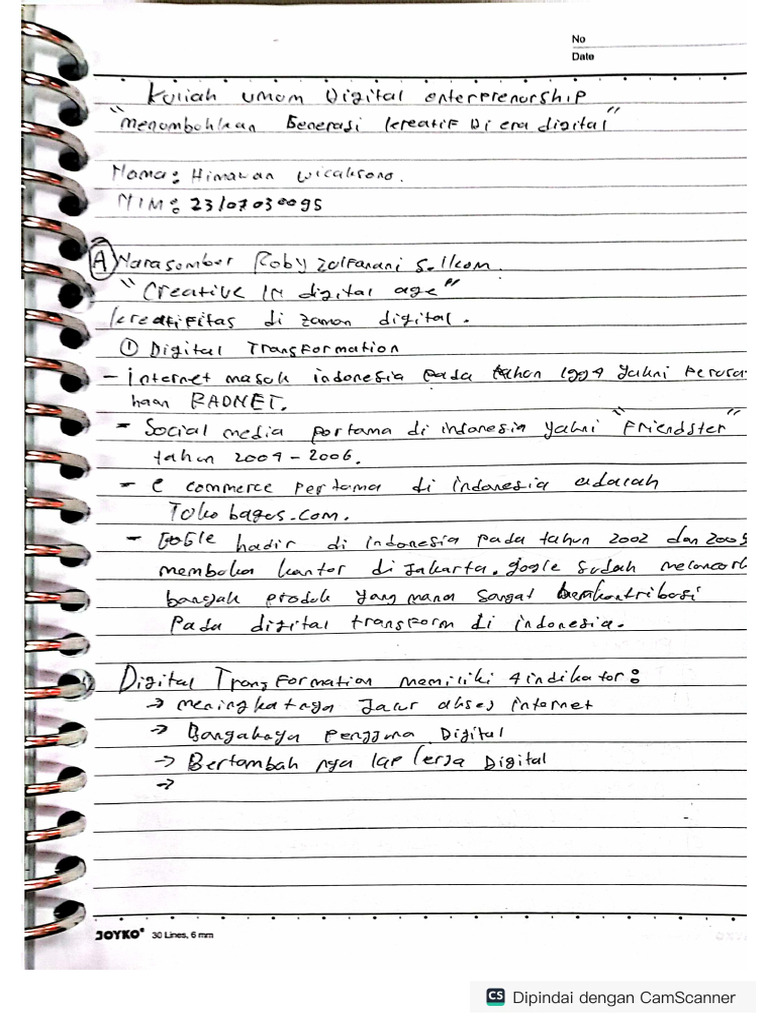 No
Date
Kuliah umum Digital enterprenurship
"menumbohkan Generasi kreatif Di era digital"
Nama: Himawan wicaksono.
NIM: 23107030095
A Narasumber Roby Zulfanani S.Ikom.
"Creative IN digital age"
kreatifitas di zaman digital.
① Digital Transformation
- internet masuk indonesia pada tahun 1994 yakni Perusa-
haan RADNET.
- Social media pertama di indonesia yakni "Friendster"
tahun 2004 - 2006.
- e commerce pertama di indonesia adalah
Toko bagus.com.
- hadir di indonesia pada tahun 2002 dan
membuka kantor di Jakarta. gogle sudah
banyak produk yang mana sangat berkontribusi
pada digital transform di indonesia.
Digital Transformation memiliki 4 indikator:
→ meningkatnya Jalur akses internet
→ Pengguna Digital
→ Bertambah nya lap kerja Digital
→
JOYKO 30 Lines, 6 mm
CS Dipindai dengan CamScanner